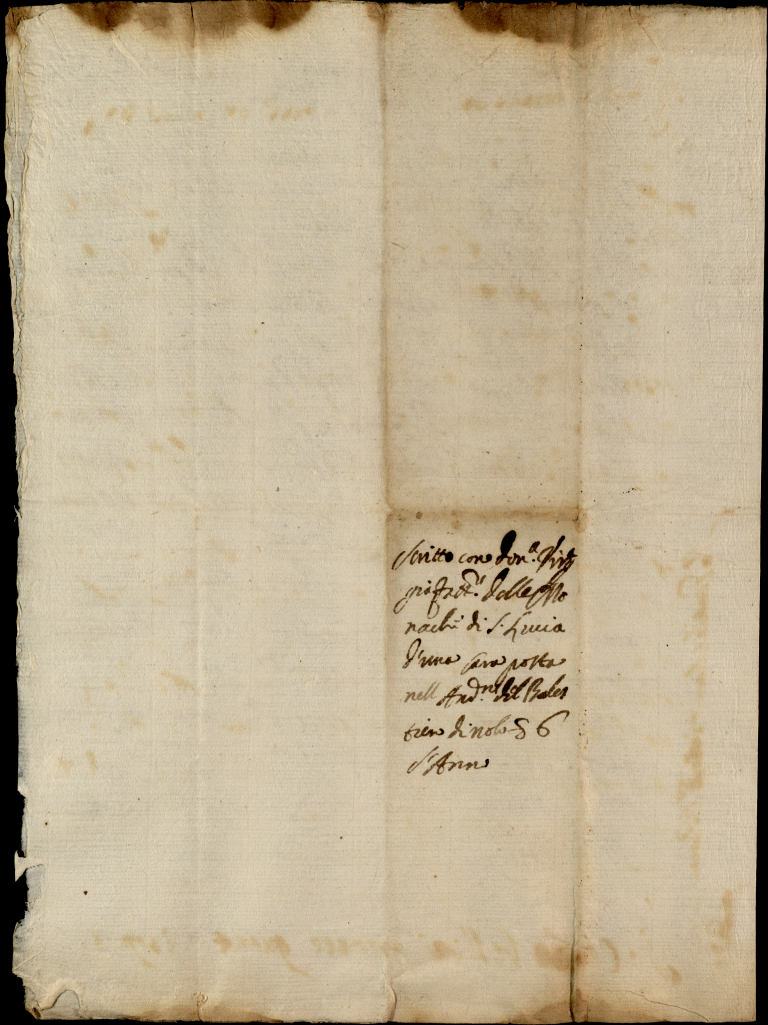 Scritto con Don.ª Virg
nia fatt.ª delle Mo
nach.e di S. Lucia
d'una casa posta
nell And.ne del Bales
trier di nolo 86
S. Anno